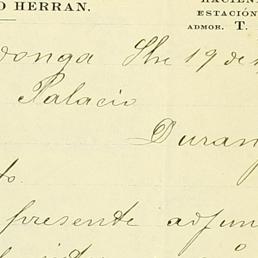 O HERRAN.
HACIEN
ESTACIÓN
ADMOR. T.
donga Sbre 19 de
Palacio
Duran
to.
presente adjun